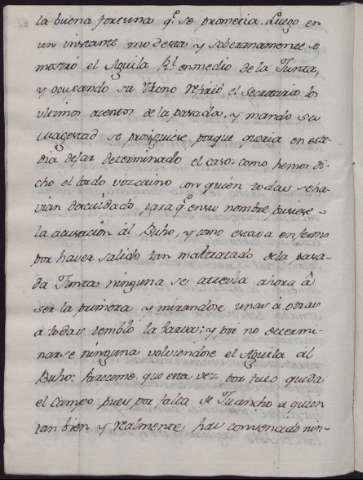 la buena fortuna q.e se prometia. Luego en
un instante modesta y soberanamente se
mostró el Aguila Rl. en medio de la Junta,
y ocupando su throno refirió el Secretario los
ultimos acentos de la pasada, y mando su
magestad se prosiguiese porque queria en este
dia dejar determinado el caso: como hemos di-
cho el tordo vizcaino con quien todas se ha-
vian descuidado, para q.e en su nombre pusiese
la acusacion al Buho, y como estava enfermo
por haver salido tan maltratado de la pasa-
da Junta ninguna se atrevia ahora â
ser la primera y mirandose unas â otras
a todas temblo la barba: y por no determi-
narse ninguna volviendose el Aguila al
Buho: Pareceme que esta vez por tuio queda
el campo, pues por falta de Juancho a quien
tan bien y realmente has convencido nin-